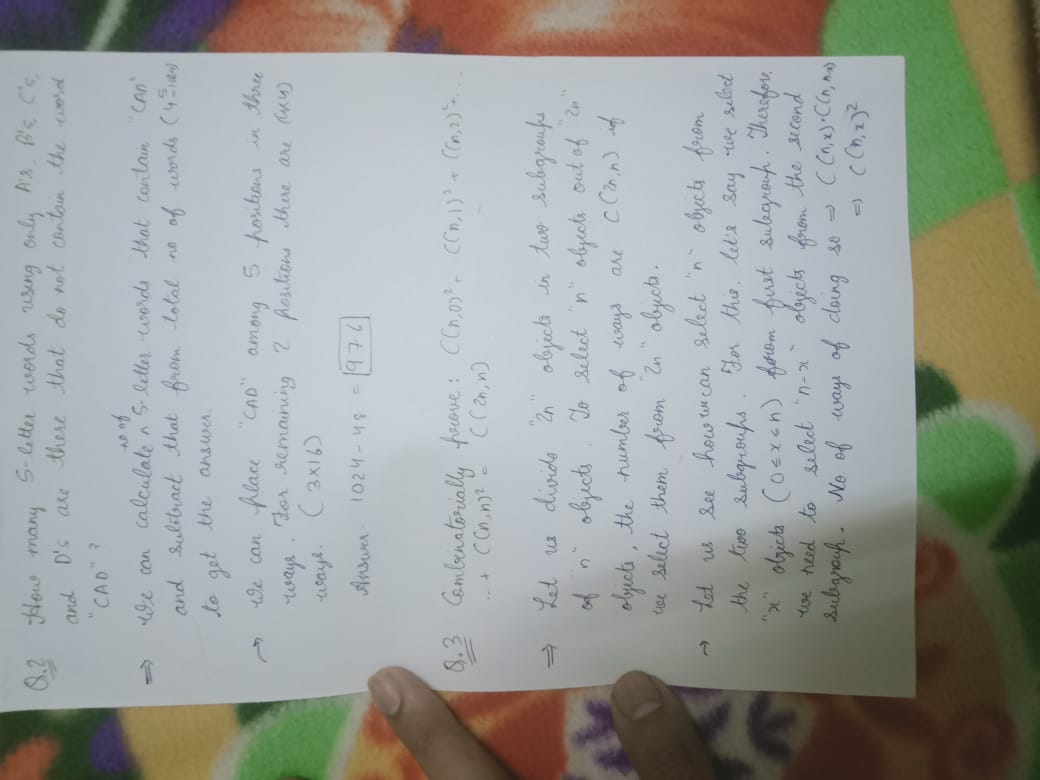 Q.2 How many 5-letter words using only A's, B's, C's,
and D's are there that do not contain the word
"CAD"?
⇒ We can calculate no. of 5 letter words that contain "CAD"
and subtract that from total no of words (4^5 = 1024)
to get the answer.
→ We can place "CAD" among 5 positions in three
ways. For remaining 2 positions there are (4x4)
ways. (3x16)
Answer 1024-48 = 976
Q.3 Combinatorially prove: C(n,0)² + C(n,1)² + C(n,2)² + ...
... + C(n,n)² = C(2n,n)
⇒ Let us divide "2n" objects in two subgroups
of "n" objects. To select "n" objects out of "2n"
objects, the number of ways are C(2n,n) if
we select them from "2n" objects.
→ Let us see how we can select "n" objects from
the two subgroups. For this, let's say we select
"x" objects (0≤x≤n) from first subgroup. Therefore,
we need to select "n-x" objects from the second
subgroup. No of ways of doing so ⇒ C(n,x)·C(n,n-x)
⇒ C(n,x)²